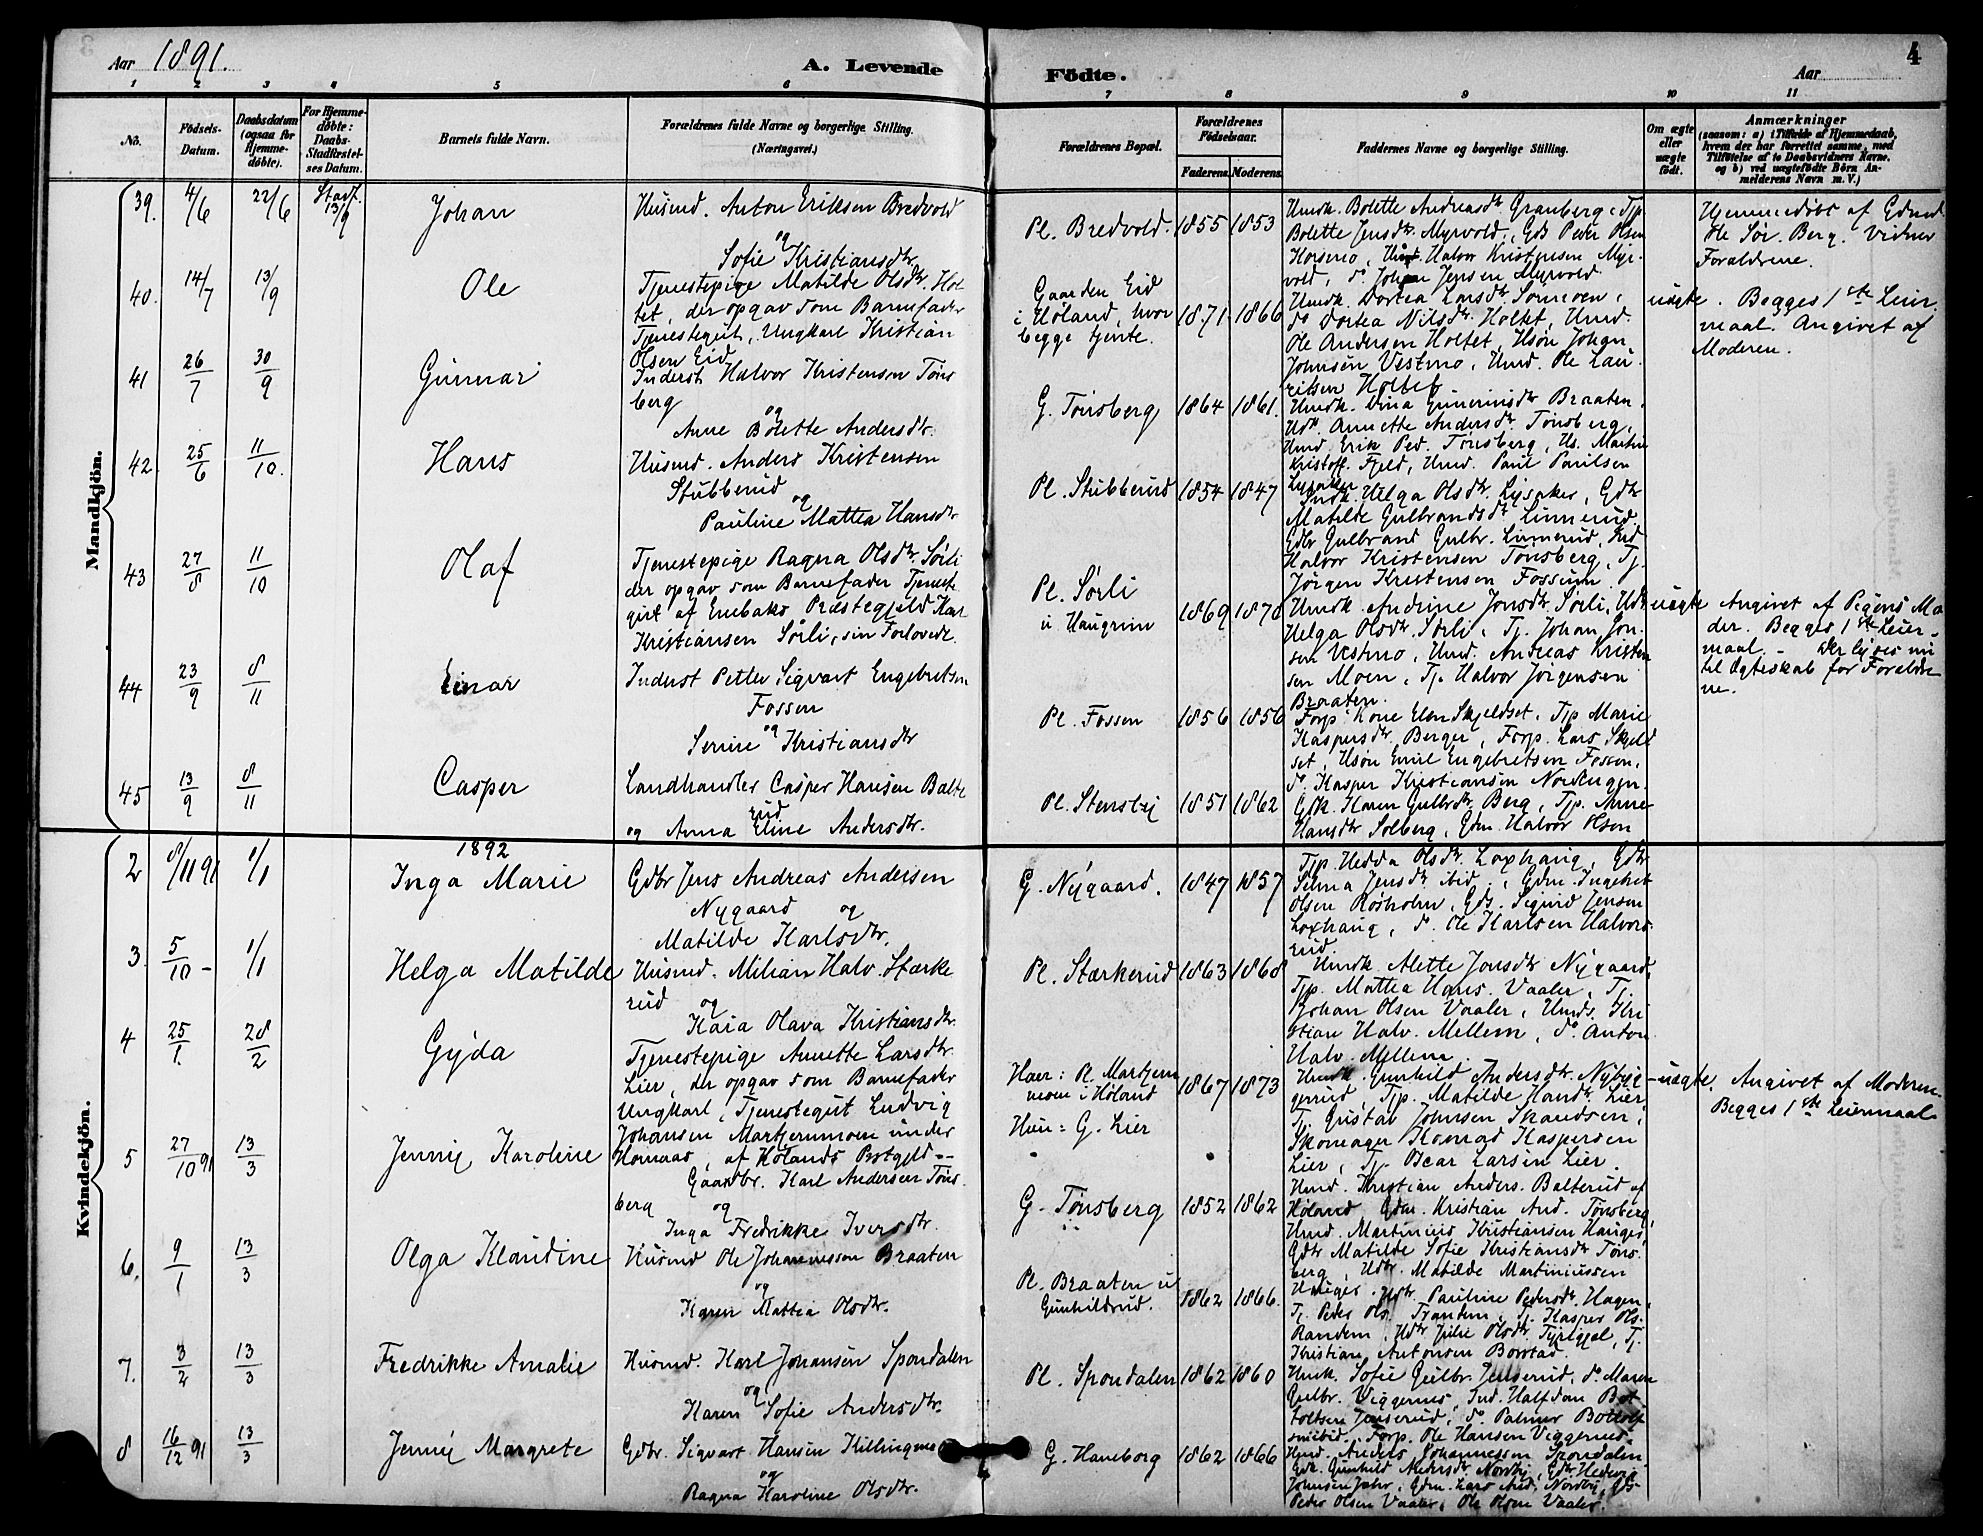 Aar 1891.
A. Levende Födte.
Aar
4
1 2 3 4 5 6 7 8 9 10 11
No.
Födsels-Datum.
Daabsdatum (ogsaa for Hjemmedöbte).
For Hjemmedöbte: Daabs-Stadfæstelses Datum.
Barnets fulde Navn.
Forældrenes fulde Navne og borgerlige Stilling.
(Næringsvei.)
Forældrenes Bopæl.
Forældrenes Födselsaar.
Faderens. Moderens.
Faddernes Navne og borgerlige Stilling.
Om ægte eller uægte födt.
Anmærkninger
(saasom: a) i Tilfælde af Hjemmedaab, hvem der har forrettet samme, med Tilföielse af to Daabsvidners Navne, og b) ved uægtefödte Börn Anmelderens Navn m. V.)
Mandkjön.
39. 4/6 22/6 Stadf. 13/9 Johan
Husmd. Anton Eriksen Bredvold
og
Sofie Kristiansdtr.
Pl. Bredvold. 1855 1853
Umdk. Bolette Andreasdtr. Granberg, Tjp.
Bolette Jensdtr. Myrvold, Gds. Peder Olsen
Horsmo, Umd. Halvor Kristensen Myr-
vold, do Johan Jensen Myrvold.
Hjemmedöbt af Gdmd.
Ole Sör. Berg. Vidner
Forældrene.
40. 14/7 13/9 Ole
Tjenestepige Matilde Olsdtr. Hol-
tet, der opgav som Barnefader
Tjenestegut, Ungkarl Kristian
Olsen Eid
Gaarden Eid
i Höland, hvor
begge tjente.
1871 1866
Umdk. Dortea Larsdtr. Sörmoen,
do Dortea Nilsdtr. Holtet, Umd.
Ole Andersen Holtet, Hsön Johan
Johnsen Vestmo, Umd. Ole Lau-
ritsen Holtet
uægte.
Begges 1ste Leier-
maal. Angivet af
Moderen.
41 26/7 30/9 Gunnar
Inderst Halvor Kristensen Töns
berg
og
Anne Bolette Andersdtr.
G. Tönsberg 1864 1861.
Umdk. Dina Gunerius dtr Braaten,
Udk. Annette Andersdtr. Tönsberg,
Umd. Erik Ped. Tönsberg, Hs. Martin
Kristoff. Fjeld, Umd. Paul Paulsen
Lysaker
42. 25/6 11/10. Hans
Husmd. Anders Kristensen
Stubberud
og
Pauline Mattea Hansdtr
Pl. Stubberud 1854 1847
Indk. Helga Olsdtr. Lysaker, Gdtr
Matilde Gulbrandsdtr Linnerud.
Gdbr Gulbrand Gulbr. Linnerud, Ind
Halvor Kristensen Tönsberg, Tj.
Jörgen Kristensen Fossum.
43 27/8 11/10 Olaf
Tjenestepige Ragna Olsdtr. Sörli
der opgav som Barnefader Tjeneste
gut af Enebaks Præstegjeld Karl
Kristiansen Sörli, sin Forlovede.
Pl. Sörli
u. Haugrim
1869 1870
Umdk. Andrine Jonsdtr. Sörli, Udtr
Helga Olsdtr. Sörli, Tj. Johan Jon-
sen Vestmo, Umd. Andreas Kristen
sen Moen, Tj. Halvor Jörgensen
Braaten.
uægte
Angivet af Pigens Mo-
der. Begges 1ste Leier-
maal. - Der lyses nu
til Ægteskab for Forældre
ne.
44 23/9 8/11 Einar
Inderst Petter Sigvart Engebretsen
Fossen
og
Serine Kristiansdtr
Pl. Fossen 1856 1856
Forp. Kone Elen Skjeldset, Tjp. Marie
Kaspersdtr. Berger, Forp. Lars Skjeld
set, Hsön Emil Engebretsen Fossen,
do. Kasper Kristiansen Nordengen.
45 13/9 8/11 Casper
Landhandler Casper Hansen Balte
rud
og Anna Eline Andersdtr.
Pl. Stensby 1851 1862
Gdk. Karen Gulbrdtr Berg, Tjp. Anne
Hansdtr Solberg, Gdm. Halvor Olsen
Kvindekjön.
1892
2 8/11 91 1/1 Inga Marie
Gdbr Jens Andreas Andersen
Nygaard og
Matilde Karlsdtr.
G. Nygaard. 1847 1857
Tjp. Hedda Olsdtr. Loxhaug, Gdtr
Selma Jensdtr ibid., Gdm. Ingebret
Olsen Rösholm, Gds. Sigurd Jensen
Loxhaug, do. Ole Karlsen Halvors
rud.
3. 5/10 - 1/1 Helga Matilde
Husmd. Milian Halv. Stærke
rud og
Kaia Olava Kristiansdtr.
Pl. Stærkerud 1863 1868
Umdk. Alette Jonsdtr Nygaard,
Tjp. Mattea Hans. Vaaler, Tj.
Johan Olsen Vaaler, Umds. Kri
stian Halv. Mellem, do Anton
Halv. Mellem.
4 25/1 28/2 Gyda
Tjenestepige Annette Larsdtr.
Lier, der opgav som Barnefader
Ungkarl, Tjenestegut Ludvig
Johansen Martjernmoen under
Homaas, af Hölands Prstgjeld -
Han: Pl. Martjern
moen i Höland
Hun: G. Lier
1867 1873
Umdk. Gunhild Andersdtr. Nybryg-
gerud, Tjp. Matilde Hansdtr. Lier
Tj. Gustav Johnsen Skandsen,
Skomager Konrad Kaspersen
Lier, Tj. Bear Larsen Lier.
uægte.
Angivet af Moderen.
Begges 1ste Leiermaal
5 27/10 91 13/3 Jenny Karoline
Gaardbr. Karl Andersen Töns-
berg og
Inga Fredrikke Iversdtr.
G. Tönsberg 1852 1862
Umd. Kristian Anders. Balterud af
Höland, Gdm. Kristian And. Tönsberg,
Umd. Martinius Kristiansen Hauger,
Gdtr Matilde Sofie Kristiansdtr Töns-
berg, Udtr. Matilde Martiniussen
Hauger.
6. 9/1 13/3 Olga Klaudine
Husmd Ole Johannessen Braaten
og
Karen Mattea Olsdtr.
Pl. Braaten u
Gunhildrud.
1862 1866.
Udtr Pauline Pedersdtr. Hagen,
Tj. Peder Ols. Trandem, Tj. Kasper Ols.
Randem, Udtr Julie Olsdtr. Tyrigjel, Tj.
Kristian Antonsen Borstad.
7. 3/2 13/3 Fredrikke Amalie
Husmd. Karl Johansen Spondalen
og
Karen Sofie Andersdtr.
Pl. Spondalen 1862 1860
Umk. Sofie Gulbr. Jenserud, do. Maren
Gulbr. Viggerus, Ind. Halfdan Bot-
tolfsen Jenserud, do. Palmer Bottolf
sen ibid., Forp. Ole Hansen Viggerud.
Umd. Anders Johannessen Spondalen.
8 16/12 91 13/3 Jenny Margrete
Gdbr. Sigvart Hansen Killingmo
og
Ragna Karoline Olsdtr.
G. Haneborg 1862 1866
Gdk. Gunhild Andersdtr Nordby, Gdtr Hedevig
Johnsen Jahr, Gdm. Lars And. Nordby, Gds.
Peder Olsen Vaaler, Ole Olsen Vaaler.